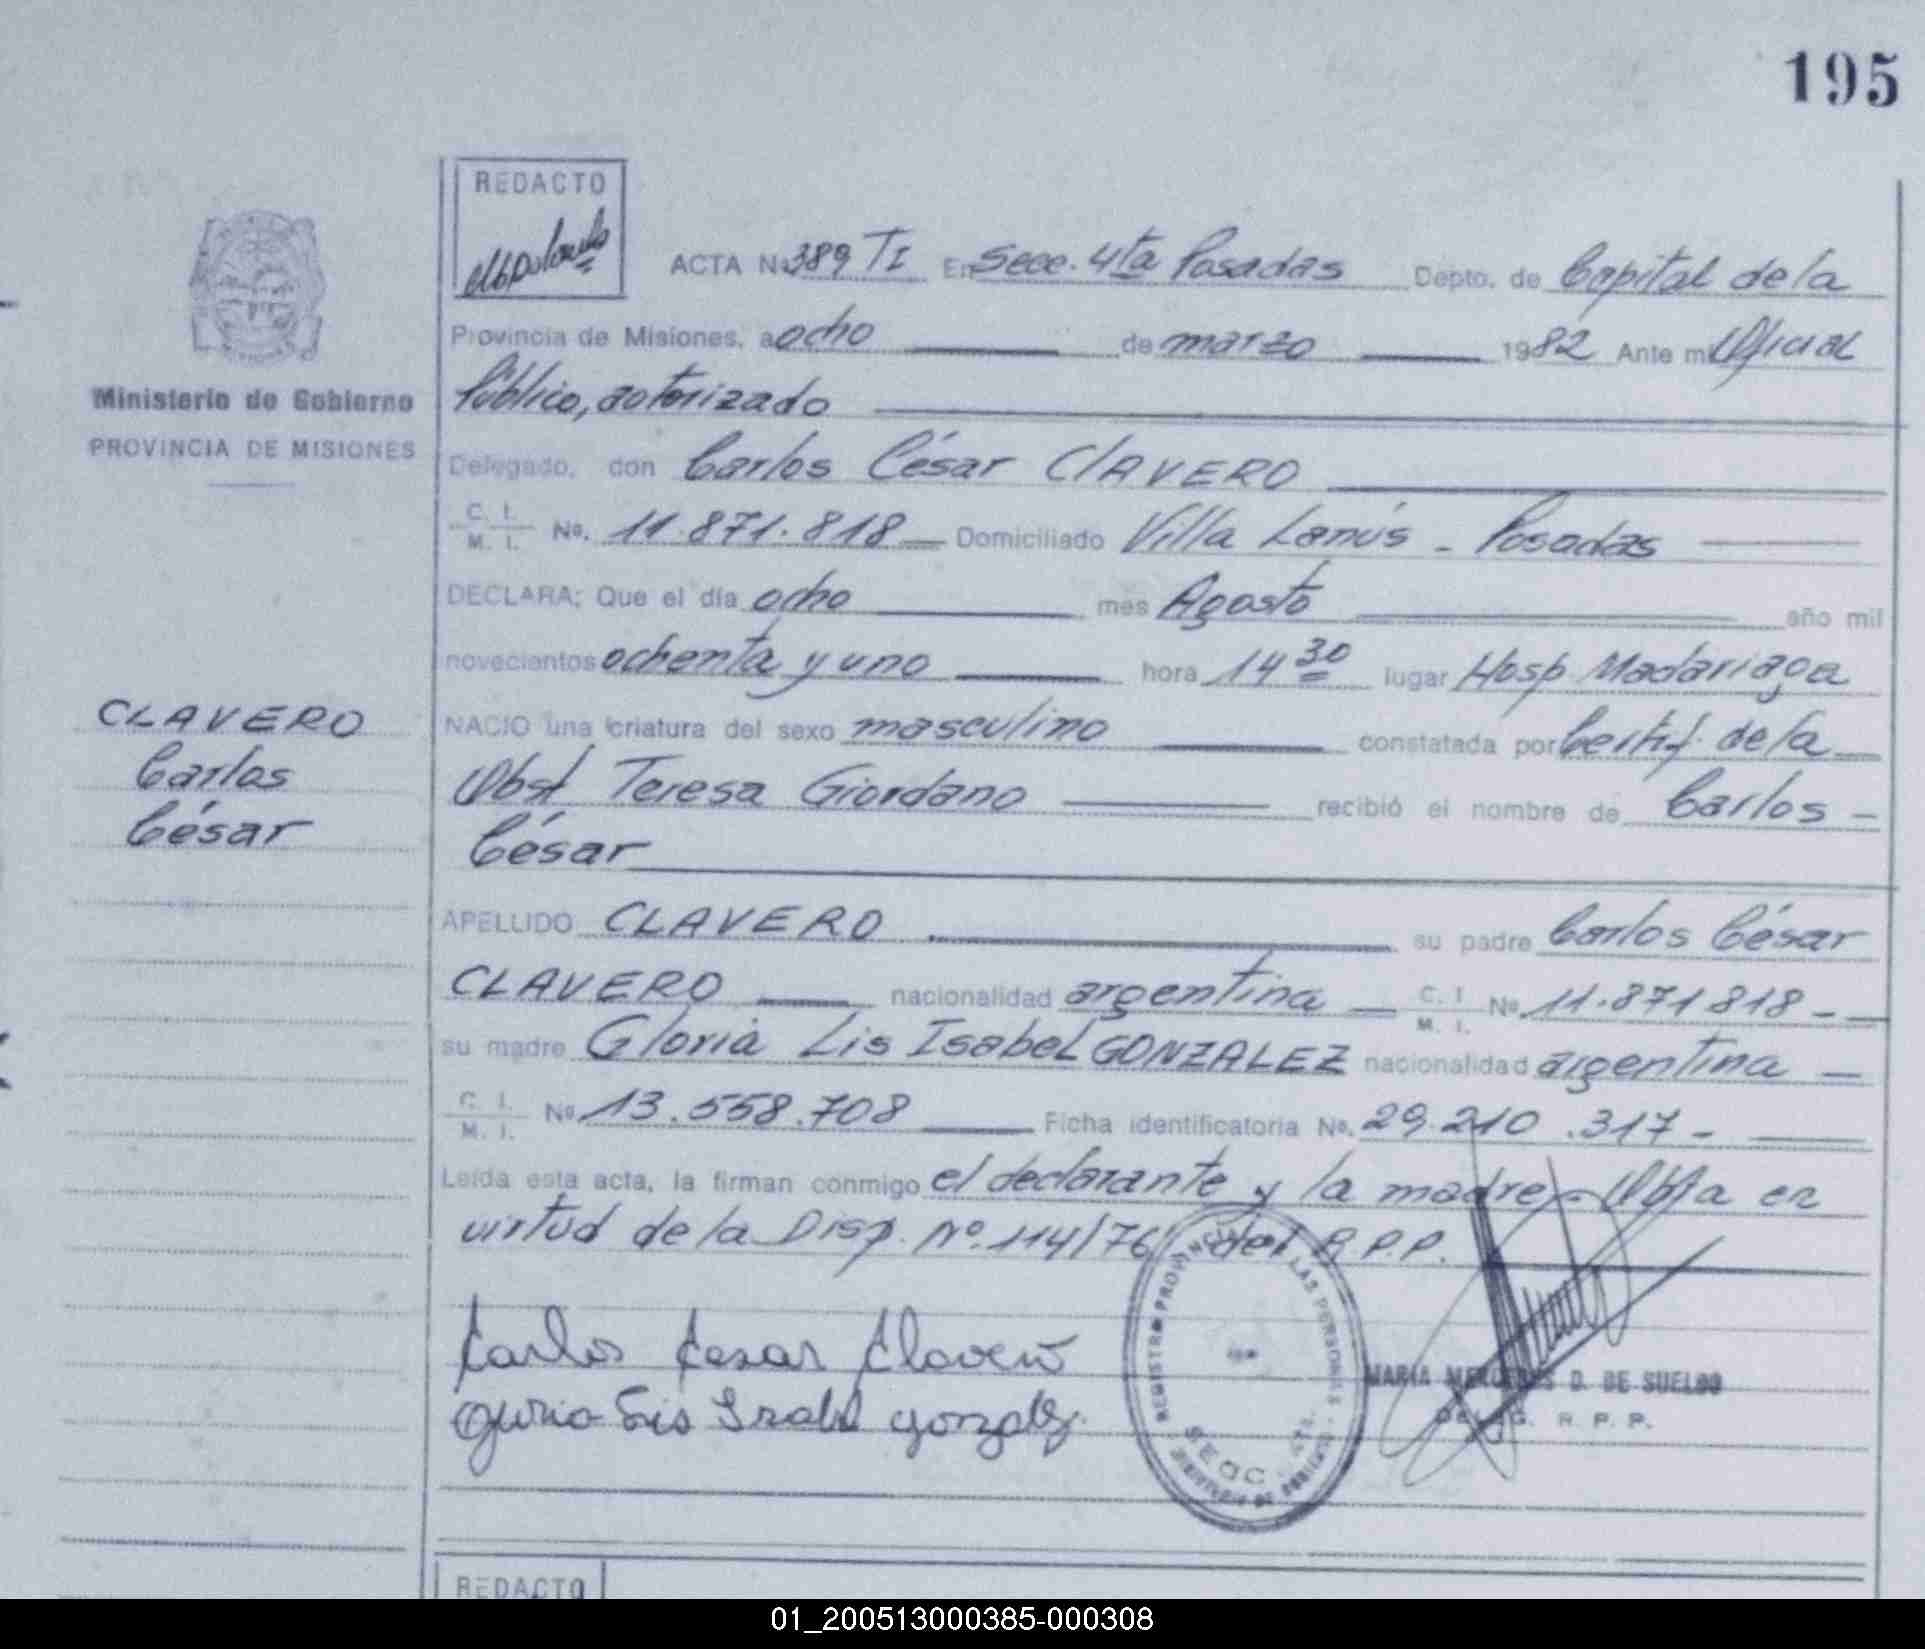 195
REDACTO
ACTA No 389 TI En Secc. 4ta Posadas Depto. de Capital de la
Provincia de Misiones, a ocho de marzo 1982 Ante mi Oficial
Público, autorizado
Ministerio de Gobierno
PROVINCIA DE MISIONES
Delegado, don Carlos César CLAVERO
C. I. M. I. No. 11.871.818 Domiciliado Villa Lanús - Posadas
DECLARA: Que el día ocho mes Agosto año mil
novecientos ochenta y uno hora 14 30 lugar Hosp. Madariaga
CLAVERO
Carlos
César
NACIO una criatura del sexo masculino constatada por Certif. de la
Obst Teresa Giordano recibió el nombre de Carlos -
César
APELLIDO CLAVERO su padre Carlos César
CLAVERO nacionalidad argentina C. I. M. I. No. 11.871818 -
su madre Gloria Lis Isabel GONZALEZ nacionalidad argentina -
C. I. M. I. No 13.558.708 Ficha identificatoria No. 29.210.317 -
Leída esta acta, la firman conmigo el declarante y la madre - en
virtud de la Disp. Nº. 114/76 del R.P.P.
Carlos Cesar Clavero
Gloria Lis Isabel Gonzalez.
REGISTRO PROVINCIAL LAS PERSONAS
SECC. 4TA.
MINISTERIO DE GOBIERNO
MARIA MERCEDES D. DE SUELDO
DELEG. R. P. P.
REDACTO
01_200513000385-000308